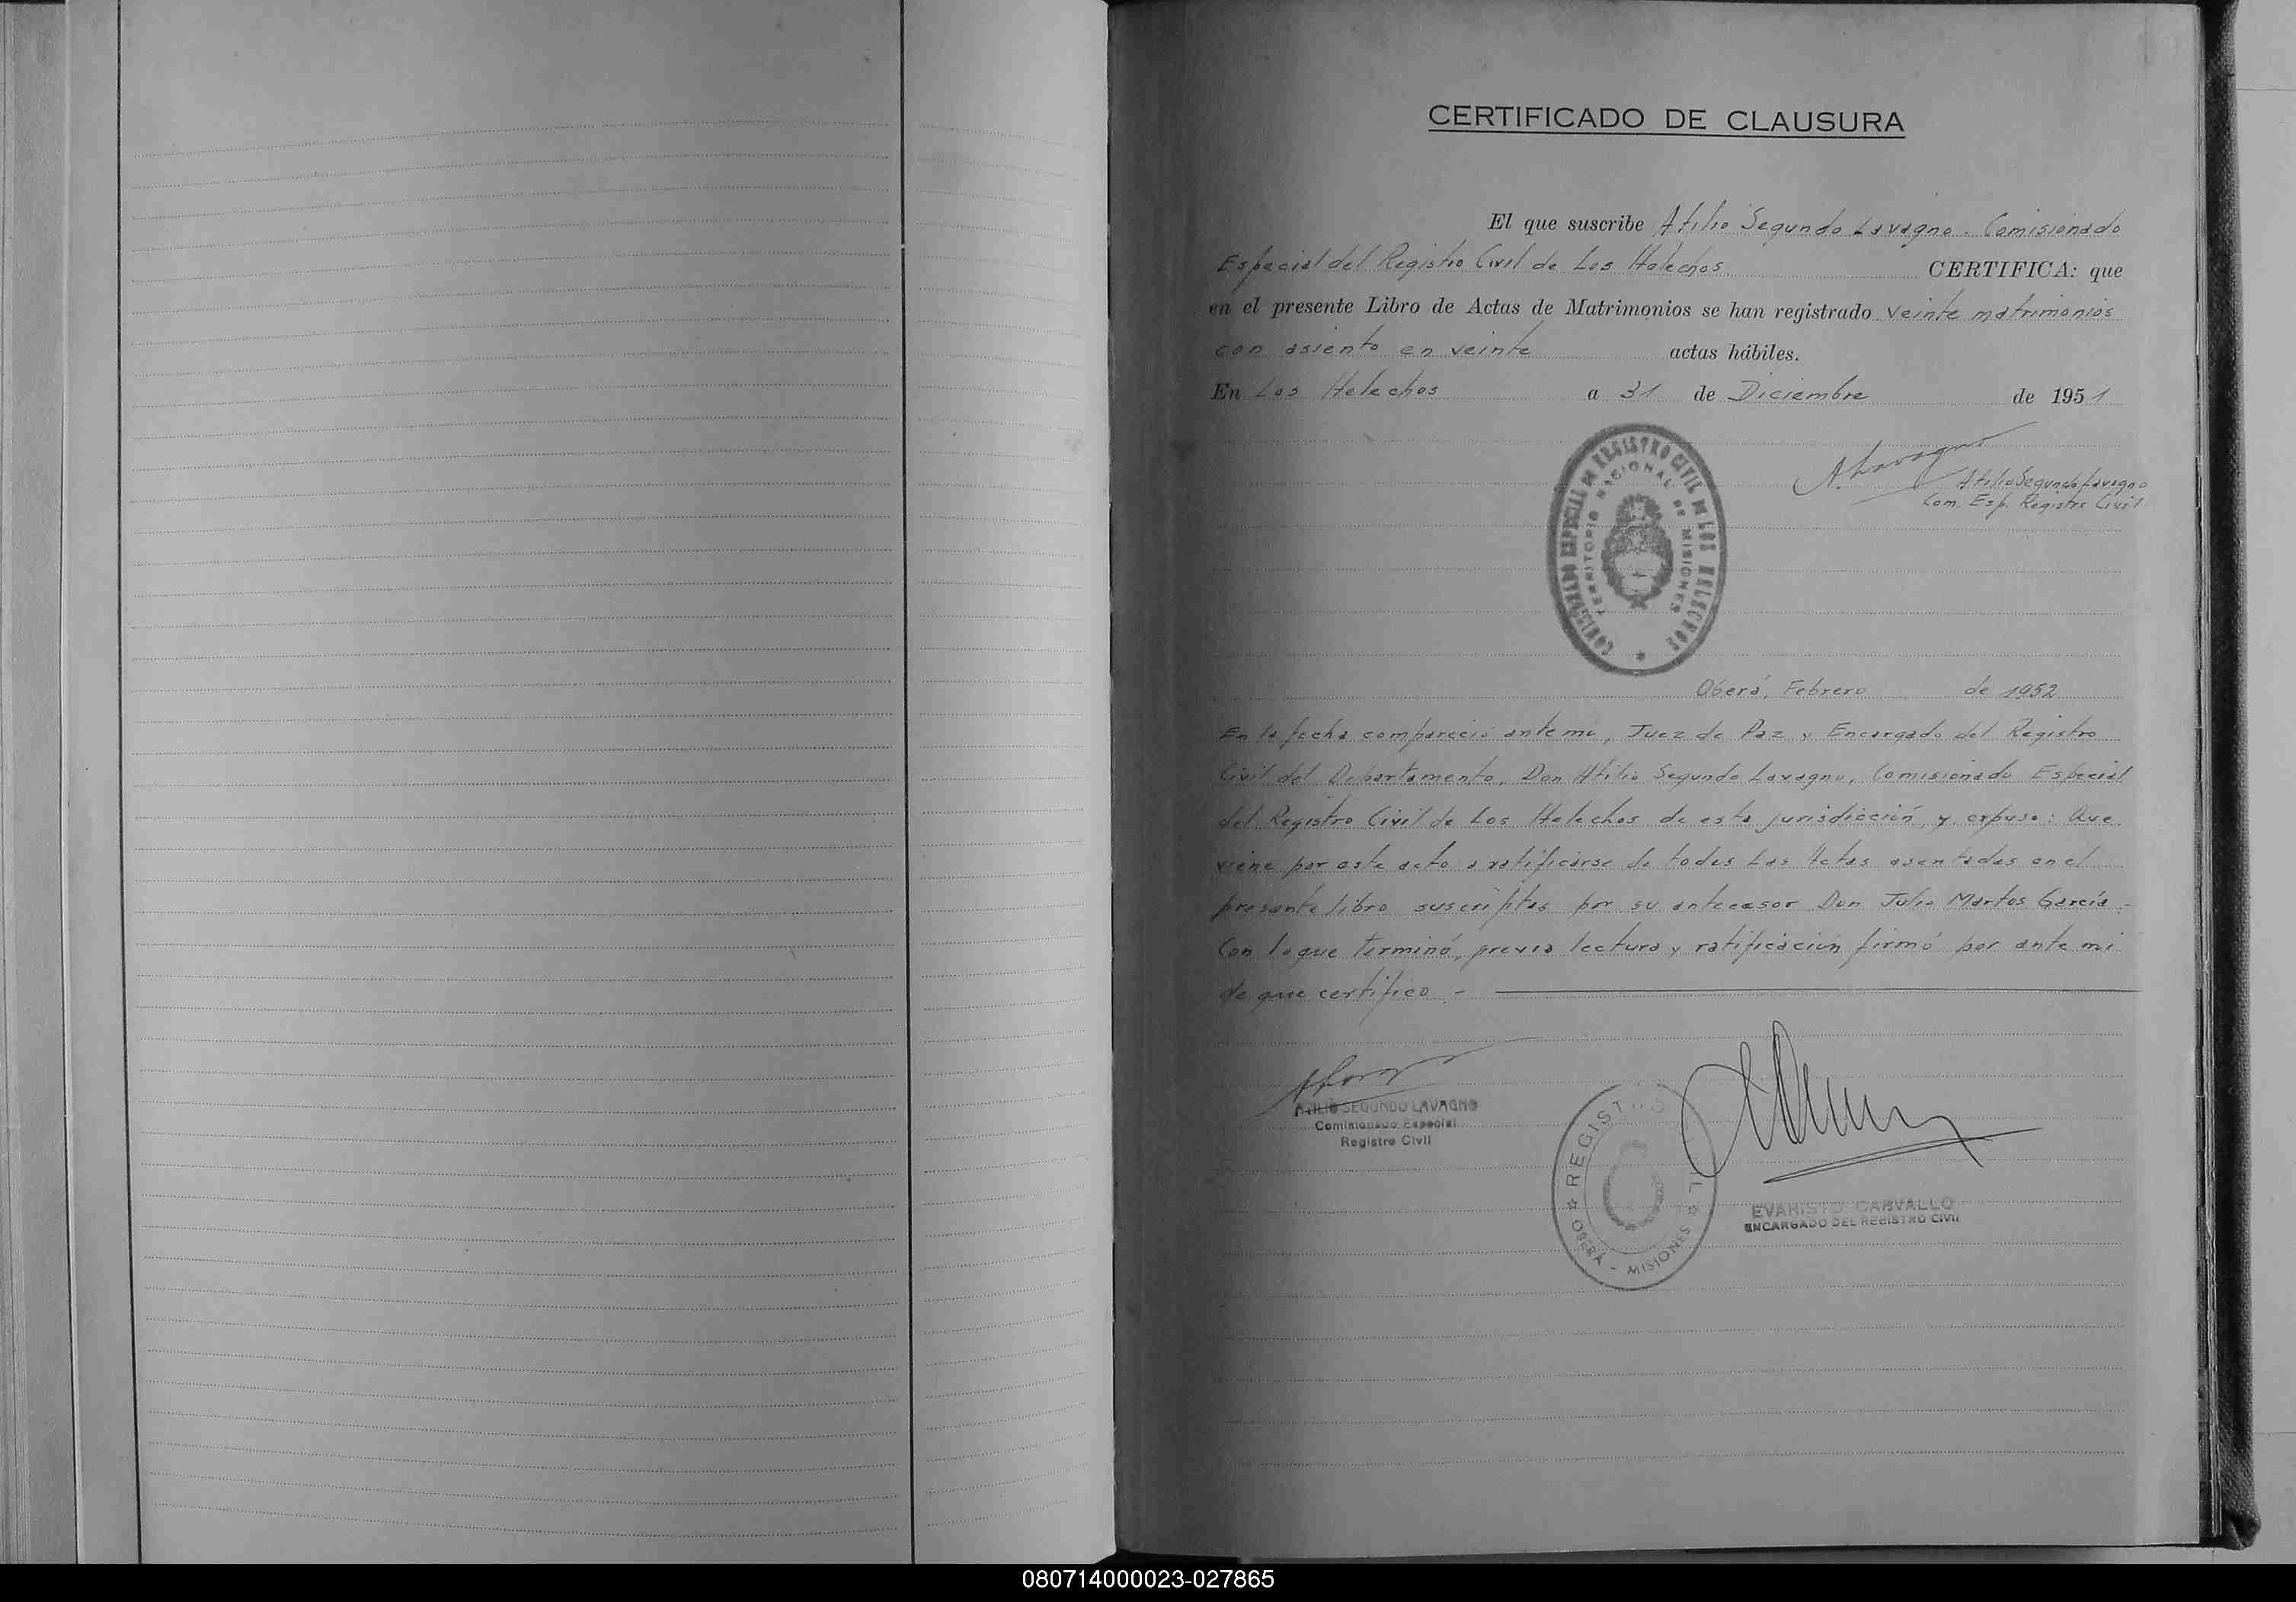 CERTIFICADO DE CLAUSURA
El que suscribe Atilio Segundo Lavagno. Comisionado
Especial del Registro Civil de Los Helechos CERTIFICA: que
en el presente Libro de Actas de Matrimonios se han registrado veinte matrimonios
con asiento en veinte actas hábiles.
En Los Helechos a 31 de Diciembre de 1951
A. Lavagno
Atilio Segundo Lavagno
Com. Esp. Registro Civil
COMISIONADO ESPECIAL DE REGISTRO CIVIL DE LOS HELECHOS
TERRITORIO NACIONAL DE MISIONES
Oberá, Febrero de 1952
En la fecha compareció ante mi, Juez de Paz y Encargado del Registro
Civil del Departamento, Don Atilio Segundo Lavagno, Comisionado Especial
del Registro Civil de Los Helechos de esta jurisdicción y expuso: Que
viene por este acto a ratificarse de todas las Actas asentadas en el
presente libro suscriptas por su antecesor Don Julio Martos García.-
Con lo que terminó, previa lectura y ratificación firmó por ante mi
de que certifico.-
ATILIO SEGUNDO LAVAGNO
Comisionado Especial
Registro Civil
REGISTRO CIVIL
OBERÁ - MISIONES
EVARISTO CARVALLO
ENCARGADO DEL REGISTRO CIVIL
080714000023-027865